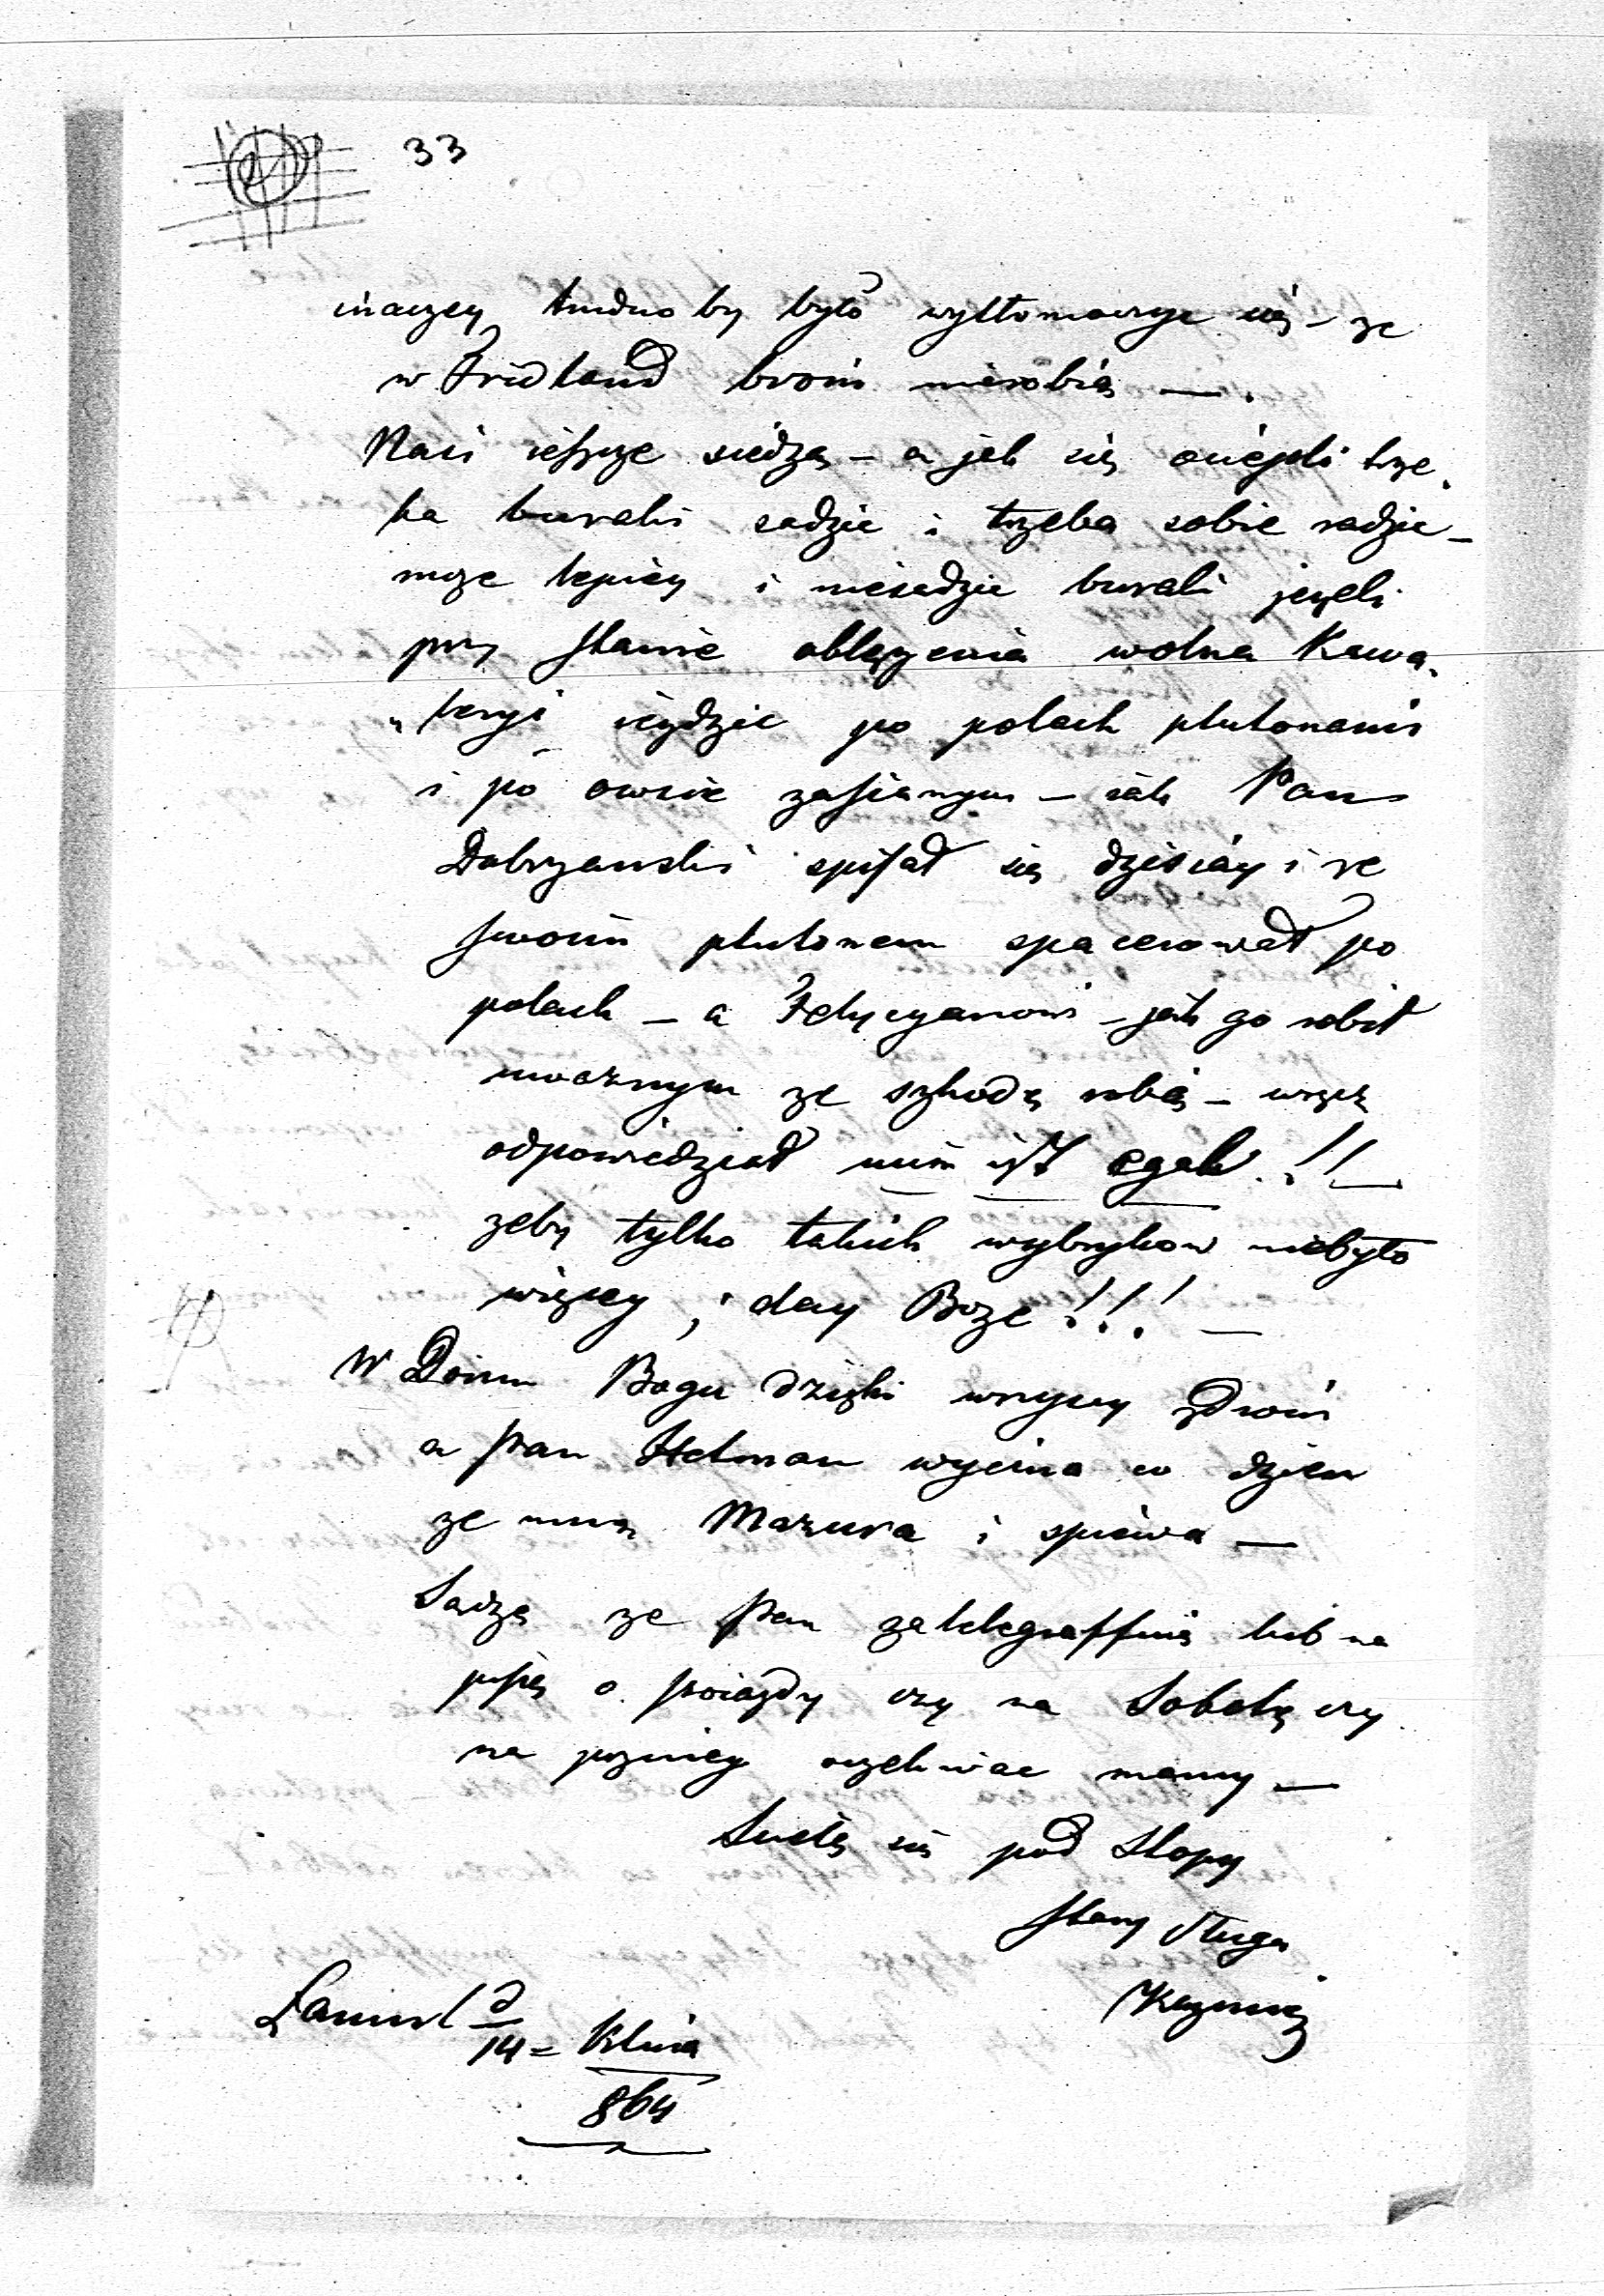 33
inaczey trudno by było wytłomaczyc się – ze
w Fridland broni nierobią — .
Nasi ieszcze siedzą – a jak się
ka buraki sadzic i trzeba sobie radzic –
moze lepiey i niesadzic buraki jezeli
przy stanie oblęzenia wolna Kawa„
„leryi iezdzic po polach plutonami
i po owsie zasianym – iak Pan
Dobrzanski spisał się dzisiay i ze
swoim plutonem spacerował po
polach – a Felycyanowi – jak go robił
uwaznym ze szkodę robią –
odpowiedział mir ist egal . !! —
zeby tylko takich wybrykow niebyło
więcey , day Boze !!! —
W Domu Bogu dzięki wszyscy zdrowi
a Pan Hetman wycina co dzien
ze mną Mazura i spiewa —
Sądzę ze Pan zatelegraffuie lub na
pisze o poiazdy czy na Sobotę czy
na pozniey oczekiwac mamy —
Scielę się pod Stopy
Stary Sługa
Kazmierz
d
14 =
864